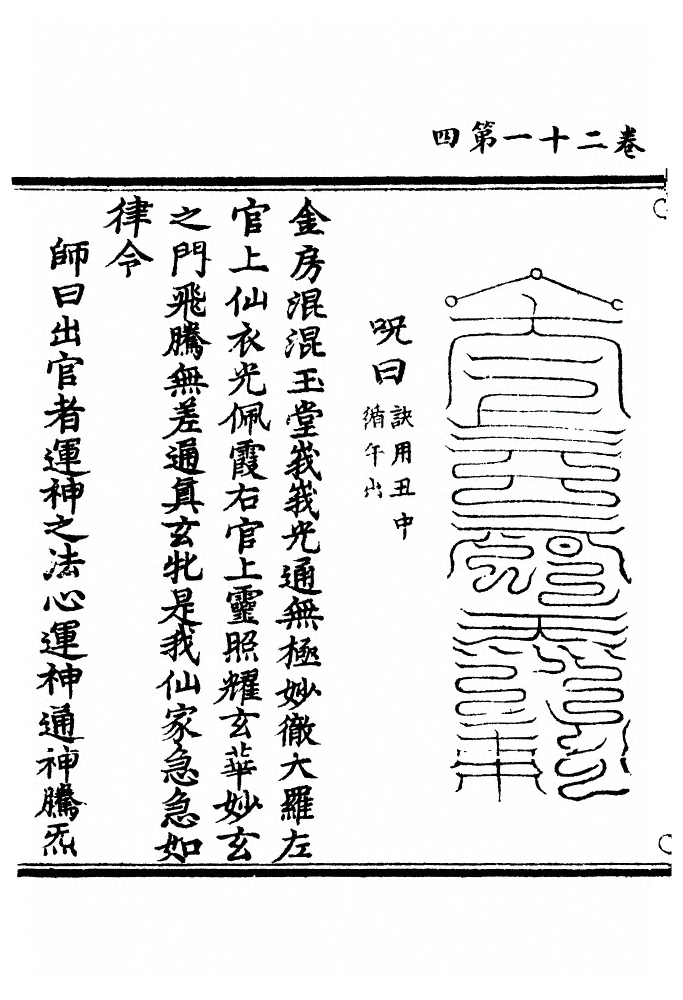 卷二十一第四
呪曰
訣用丑中
循午出
金房混混玉堂峩峩光通無極妙徹大羅左
官上仙衣光佩霞右官上靈照耀玄華妙玄
之門飛騰無差通眞玄牝是我仙家急急如
律令
師曰出官者運神之法心運神通神騰炁